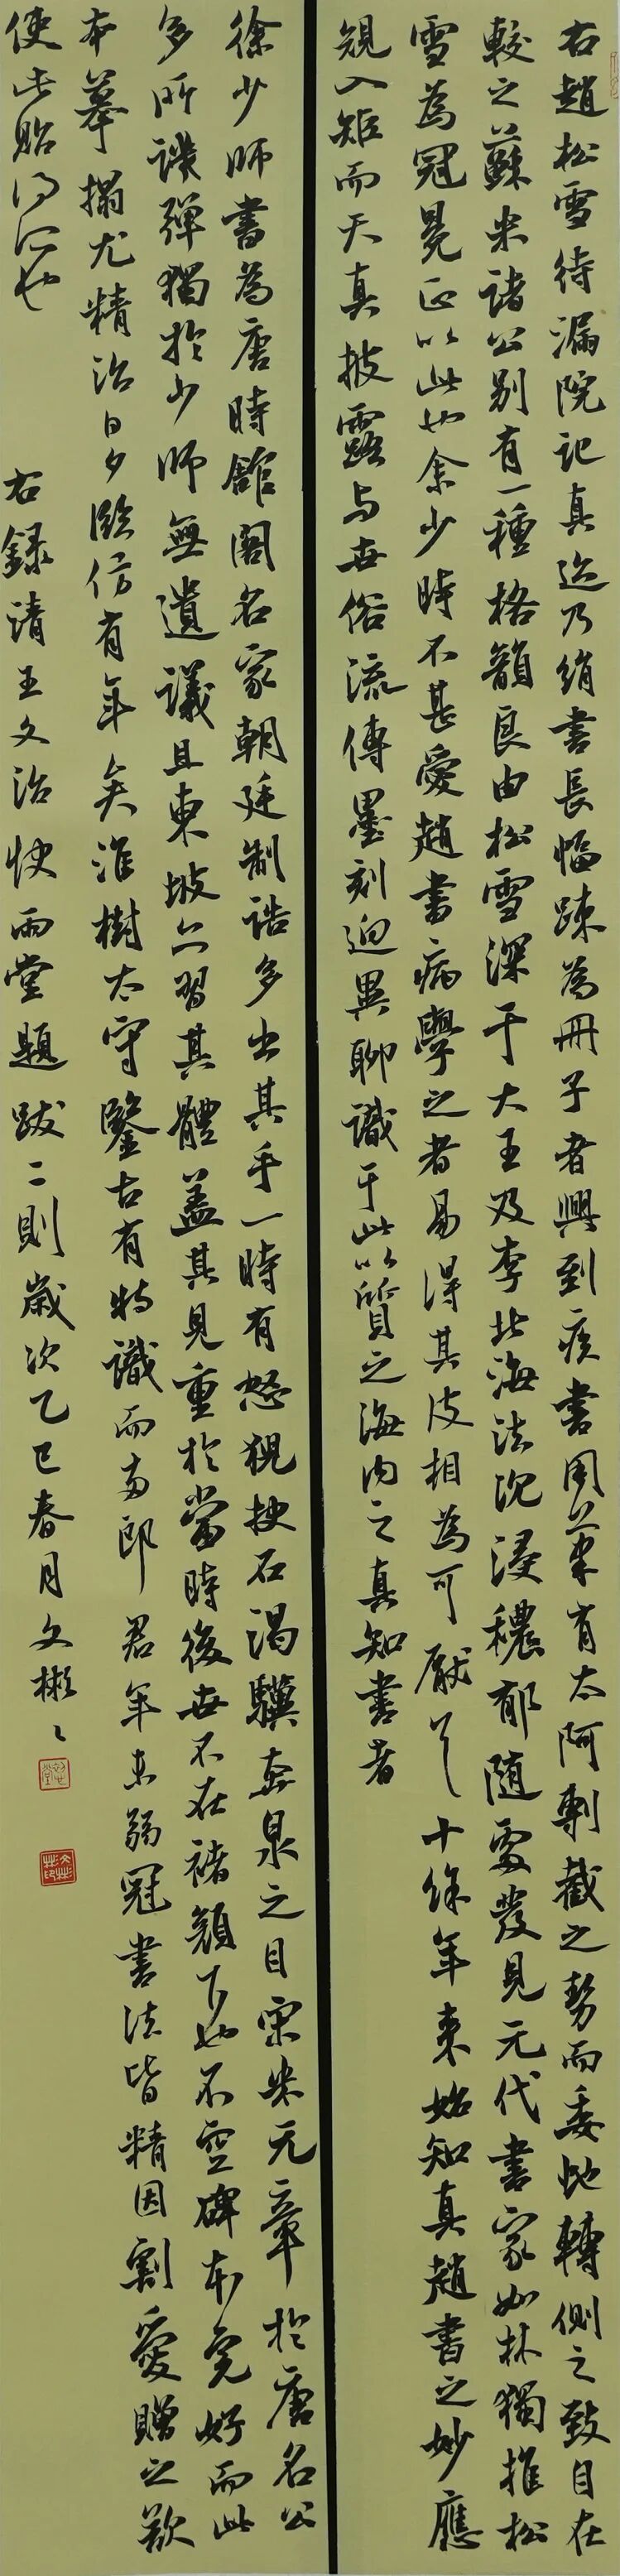 右趙松雪待漏院記真迹乃絹書長幅疎為冊子者興到疾書用筆有太阿剸截之勢而委蛇轉側之致自在
較之蘇米諸公別有一種格韻良由松雪深于大王及李北海法沉浸穠郁隨處發見元代書家如林獨推松
雪為冠冕正以此也余少時不甚愛趙書病學之者易得其皮相為可厭耳十餘年來始知真趙書之妙應
規入矩而天真披露与世俗流傳墨刻迥異聊識于此以質之海内之真知書者
徐少師書為唐時館閣名家朝廷制誥多出其手一時有怒猊抉石渴驥奔泉之目宋米元章於唐名公
多所譏彈獨於少師無遺議且東坡亦習其體蓋其見重於當時後世不在褚顏下也不空碑本完好而此
本摹搨尤精治日夕臨仿有年矣淮樹太守鑒古有特識而両郎君年未弱冠書法皆精因割愛贈之歎
使此貽得所也
右録清王文治快雨堂題跋二則歲次乙巳春月文彬